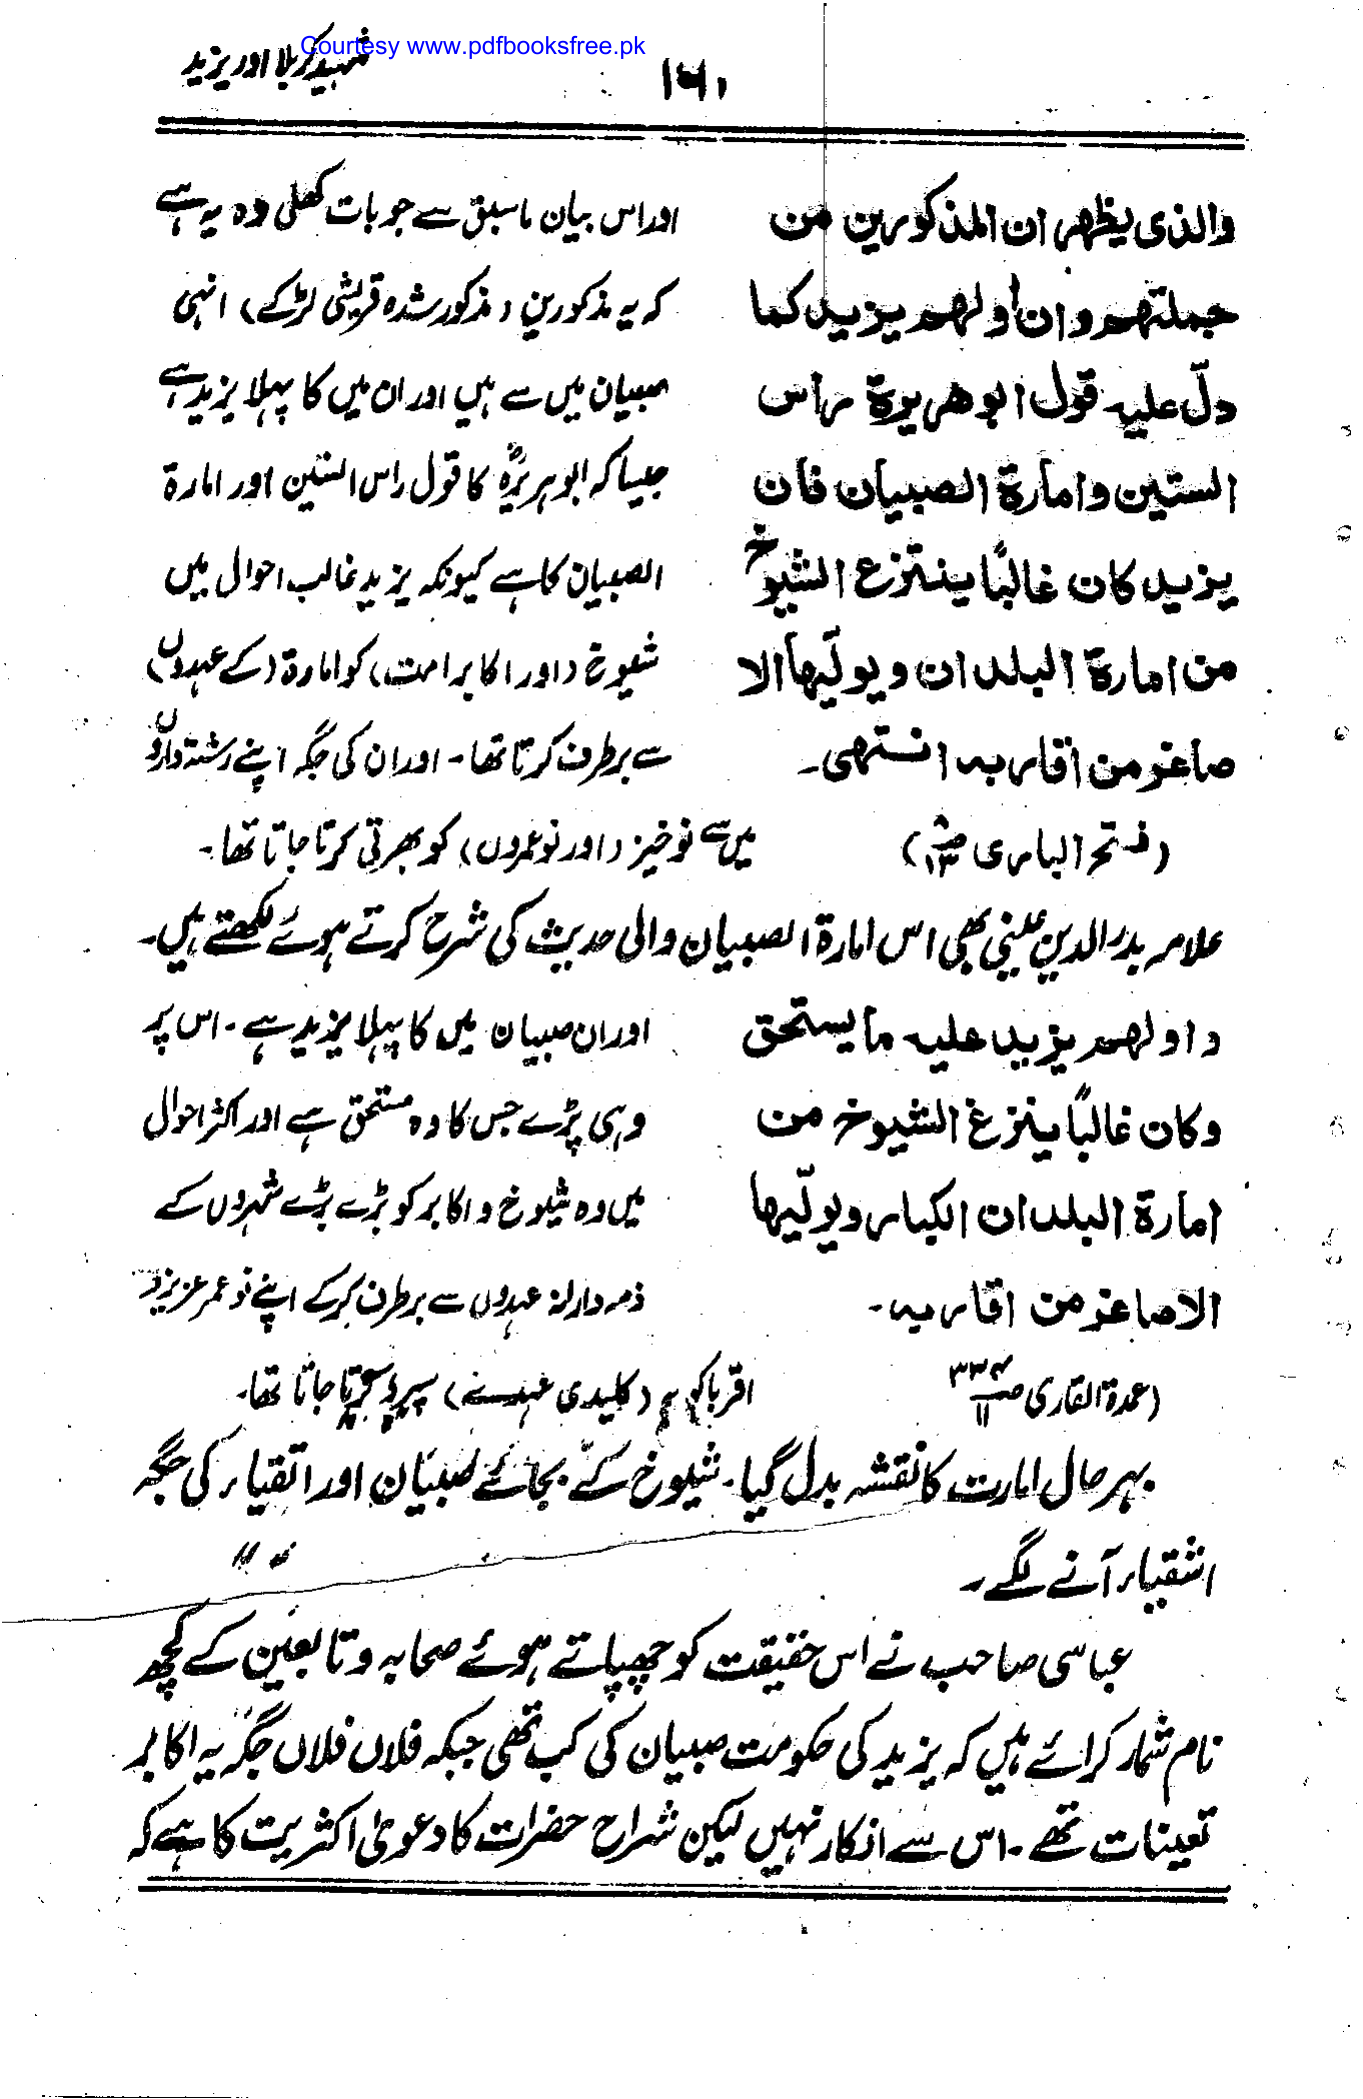 Courtesy www.pdfbooksfree.pk
شہید کربلا اور یزید
۱۶۱
والذی یظهر ان المذکورین من
جملتهم وان اولهم یزید کما
دلّ علیه قول ابو هریرة راس
الستین وامارة الصبیان فان
یزید کان غالبًا ینتزع الشیوخ
من امارة البلدان ویولّیها الا
صاغر من اقاربه انتهی۔
(فتح الباری ص ۱۳)
اور اس بیان ماسبق سے جو بات کھلی وہ یہ ہے
کہ یہ مذکورین (مذکور شدہ قریشی لڑکے) انہی
صبیان میں سے ہیں اور ان میں کا پہلا یزید ہے
جیسا کہ ابوہریرہؓ کا قول راس الستین اور امارة
الصبیان کا ہے کیونکہ یزید غالب احوال میں
شیوخ (اور اکابر امت) کو امارة (کے عہدوں)
سے برطرف کرتا تھا۔ اور ان کی جگہ اپنے رشتہ داروں
میں سے نوخیز (اور نوعمروں) کو بھرتی کرتا جاتا تھا۔
علامہ بدر الدین عینی بھی اس امارة الصبیان والی حدیث کی شرح کرتے ہوئے لکھتے ہیں۔
واولهم یزید علیه ما یستحق
وکان غالبًا ینزغ الشیوخ من
امارة البلدان الکبار ویولّیها
الاصاغر من اقاربه۔
(عمدة القاری ص ۳۳۴ ۱۱)
اور ان صبیان میں کا پہلا یزید ہے۔ اس پر
وہی پڑے جس کا وہ مستحق ہے اور اکثر احوال
میں وہ شیوخ و اکابر کو بڑے بڑے شہروں کے
ذمہ دارانہ عہدوں سے برطرف کرکے اپنے نو عمر عزیز و
اقربا کو (کلیدی عہدے) سپرد کرتا جاتا تھا۔
بہر حال امارت کا نقشہ بدل گیا۔ شیوخ کے بجائے صبیان اور اتقیاء کی جگہ
اشقیاء آنے لگے۔
عباسی صاحب نے اس حقیقت کو چھپاتے ہوئے صحابہ و تابعین کے کچھ
نام شمار کرائے ہیں کہ یزید کی حکومت صبیان کی کب تھی جبکہ فلاں فلاں جگہ یہ اکابر
تعینات تھے۔ اس سے انکار نہیں لیکن شراح حضرات کا دعویٰ اکثریت کا ہے کہ